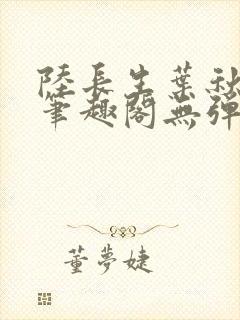 陸長生葉秋
筆趣閣無彈
董夢婕